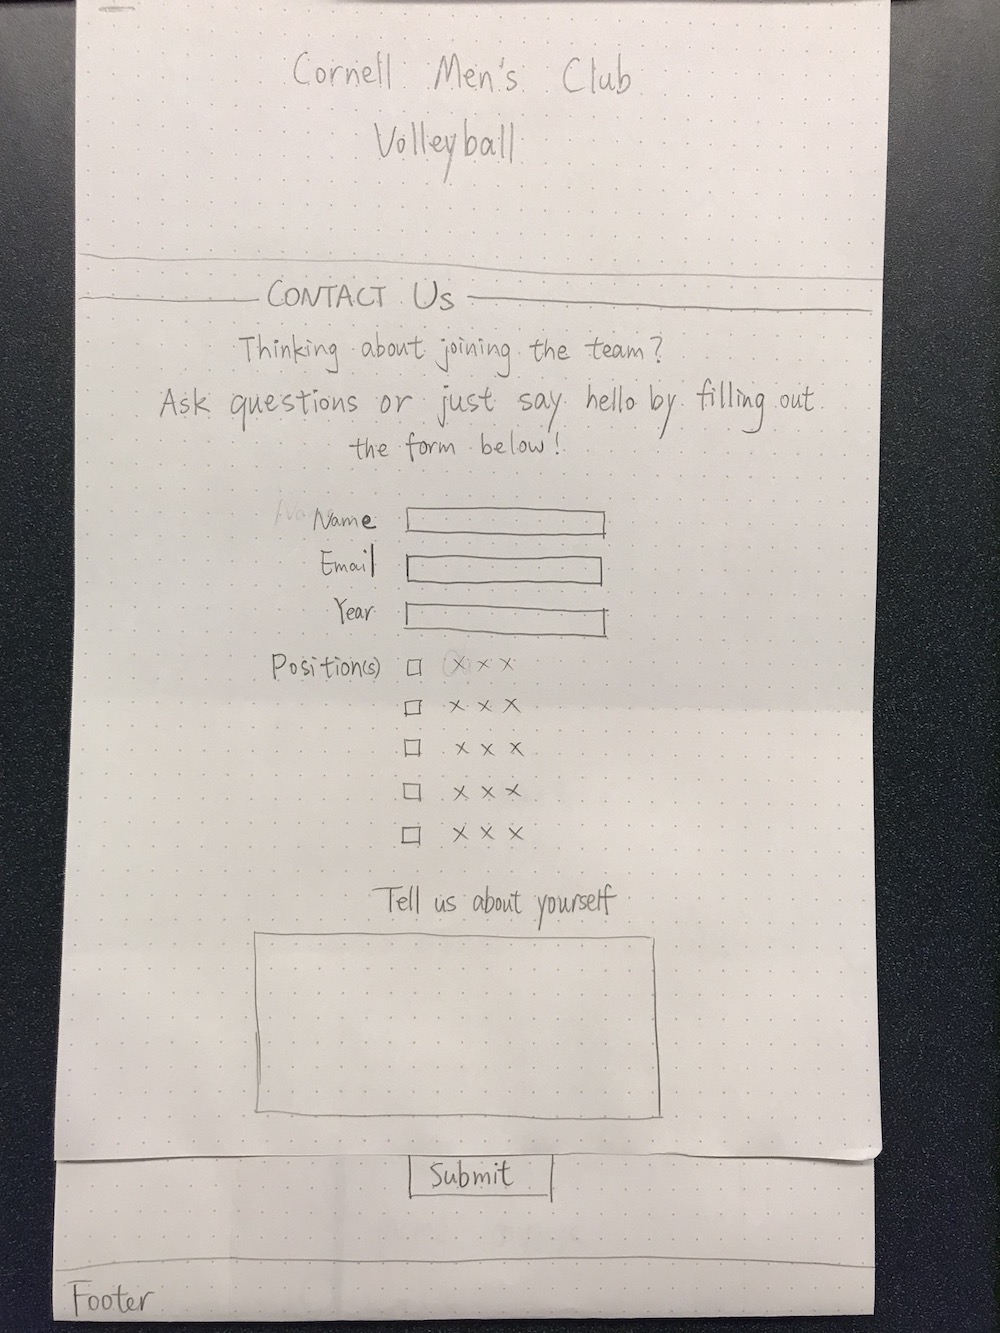 Cornell Men's Club
Volleyball
CONTACT Us
Thinking about joining the team?
Ask questions or just say hello by filling out
the form below!
Name
Email
Year
Position(s) x x x
x x x
x x x
x x x
x x x
Tell us about yourself
Submit
Footer